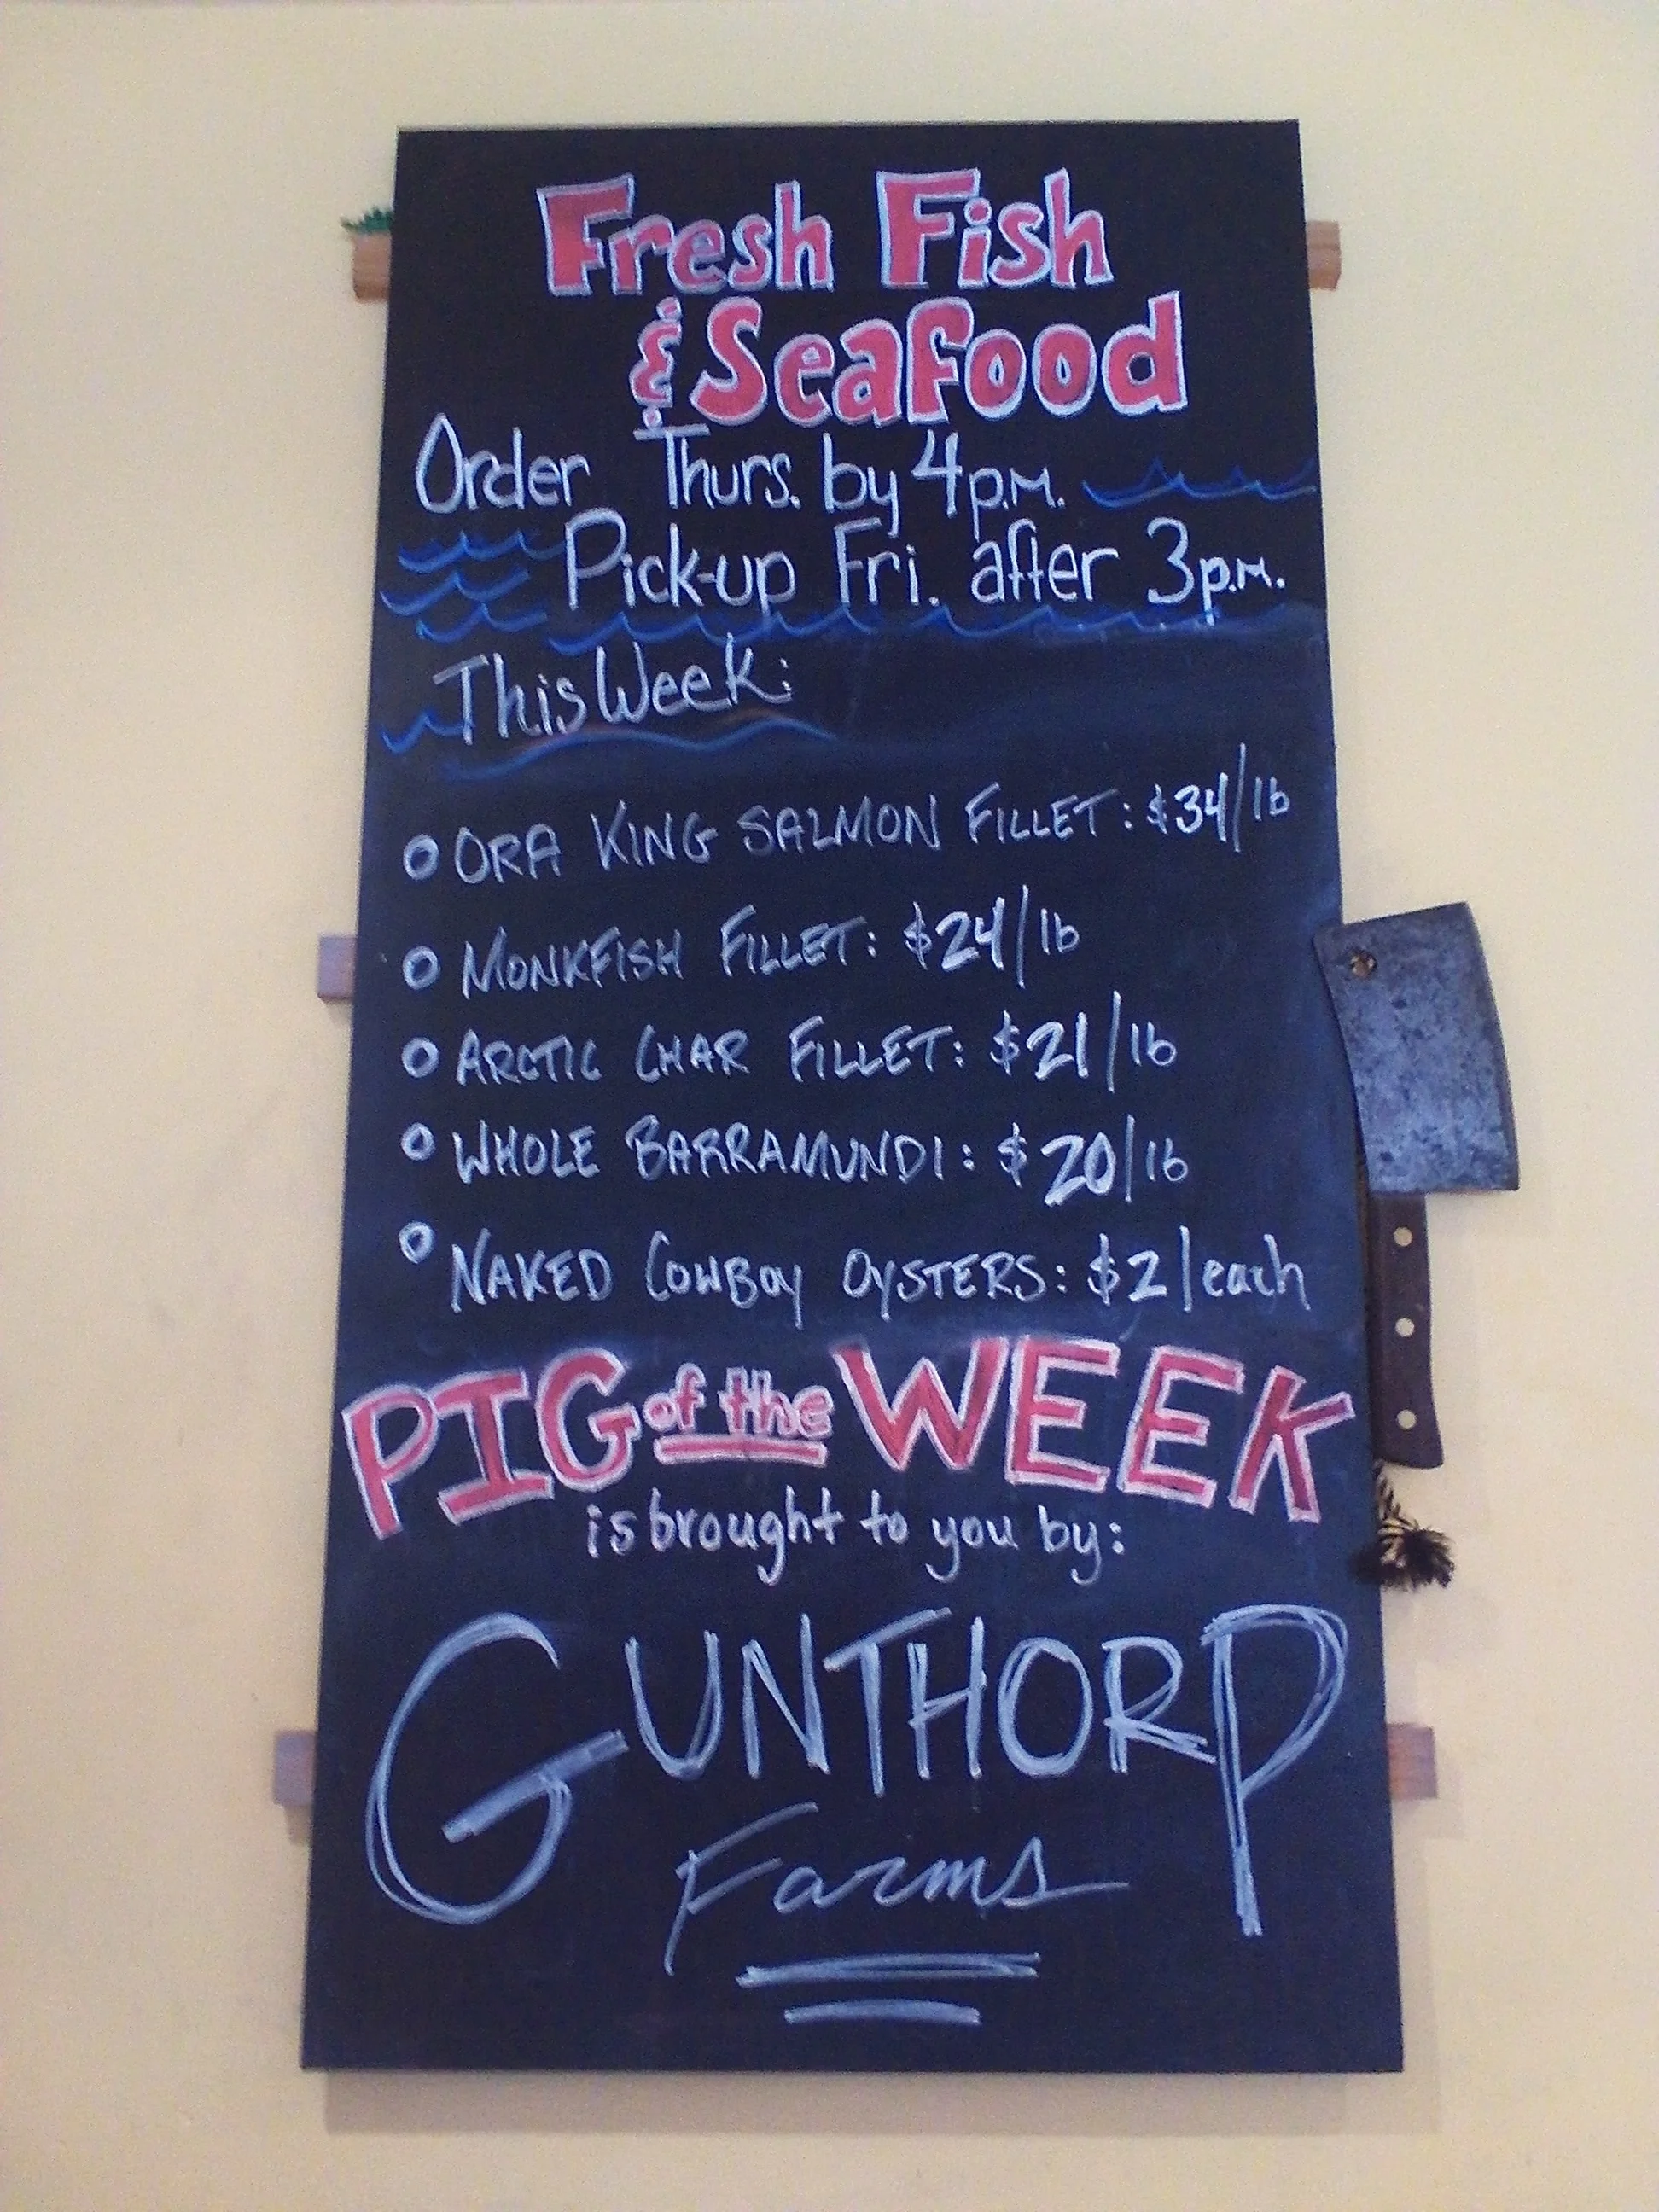 Fresh Fish
& Seafood
Order Thurs. by 4p.m.
Pick-up Fri. after 3p.m.
This Week:
ORA KING SALMON FILLET: $34/lb
MONKFISH FILLET: $24/lb
ARCTIC CHAR FILLET: $21/lb
WHOLE BARRAMUNDI: $20/lb
NAKED COWBOY OYSTERS: $2/each
PIG of the WEEK
is brought to you by:
GUNTHORP
Farms